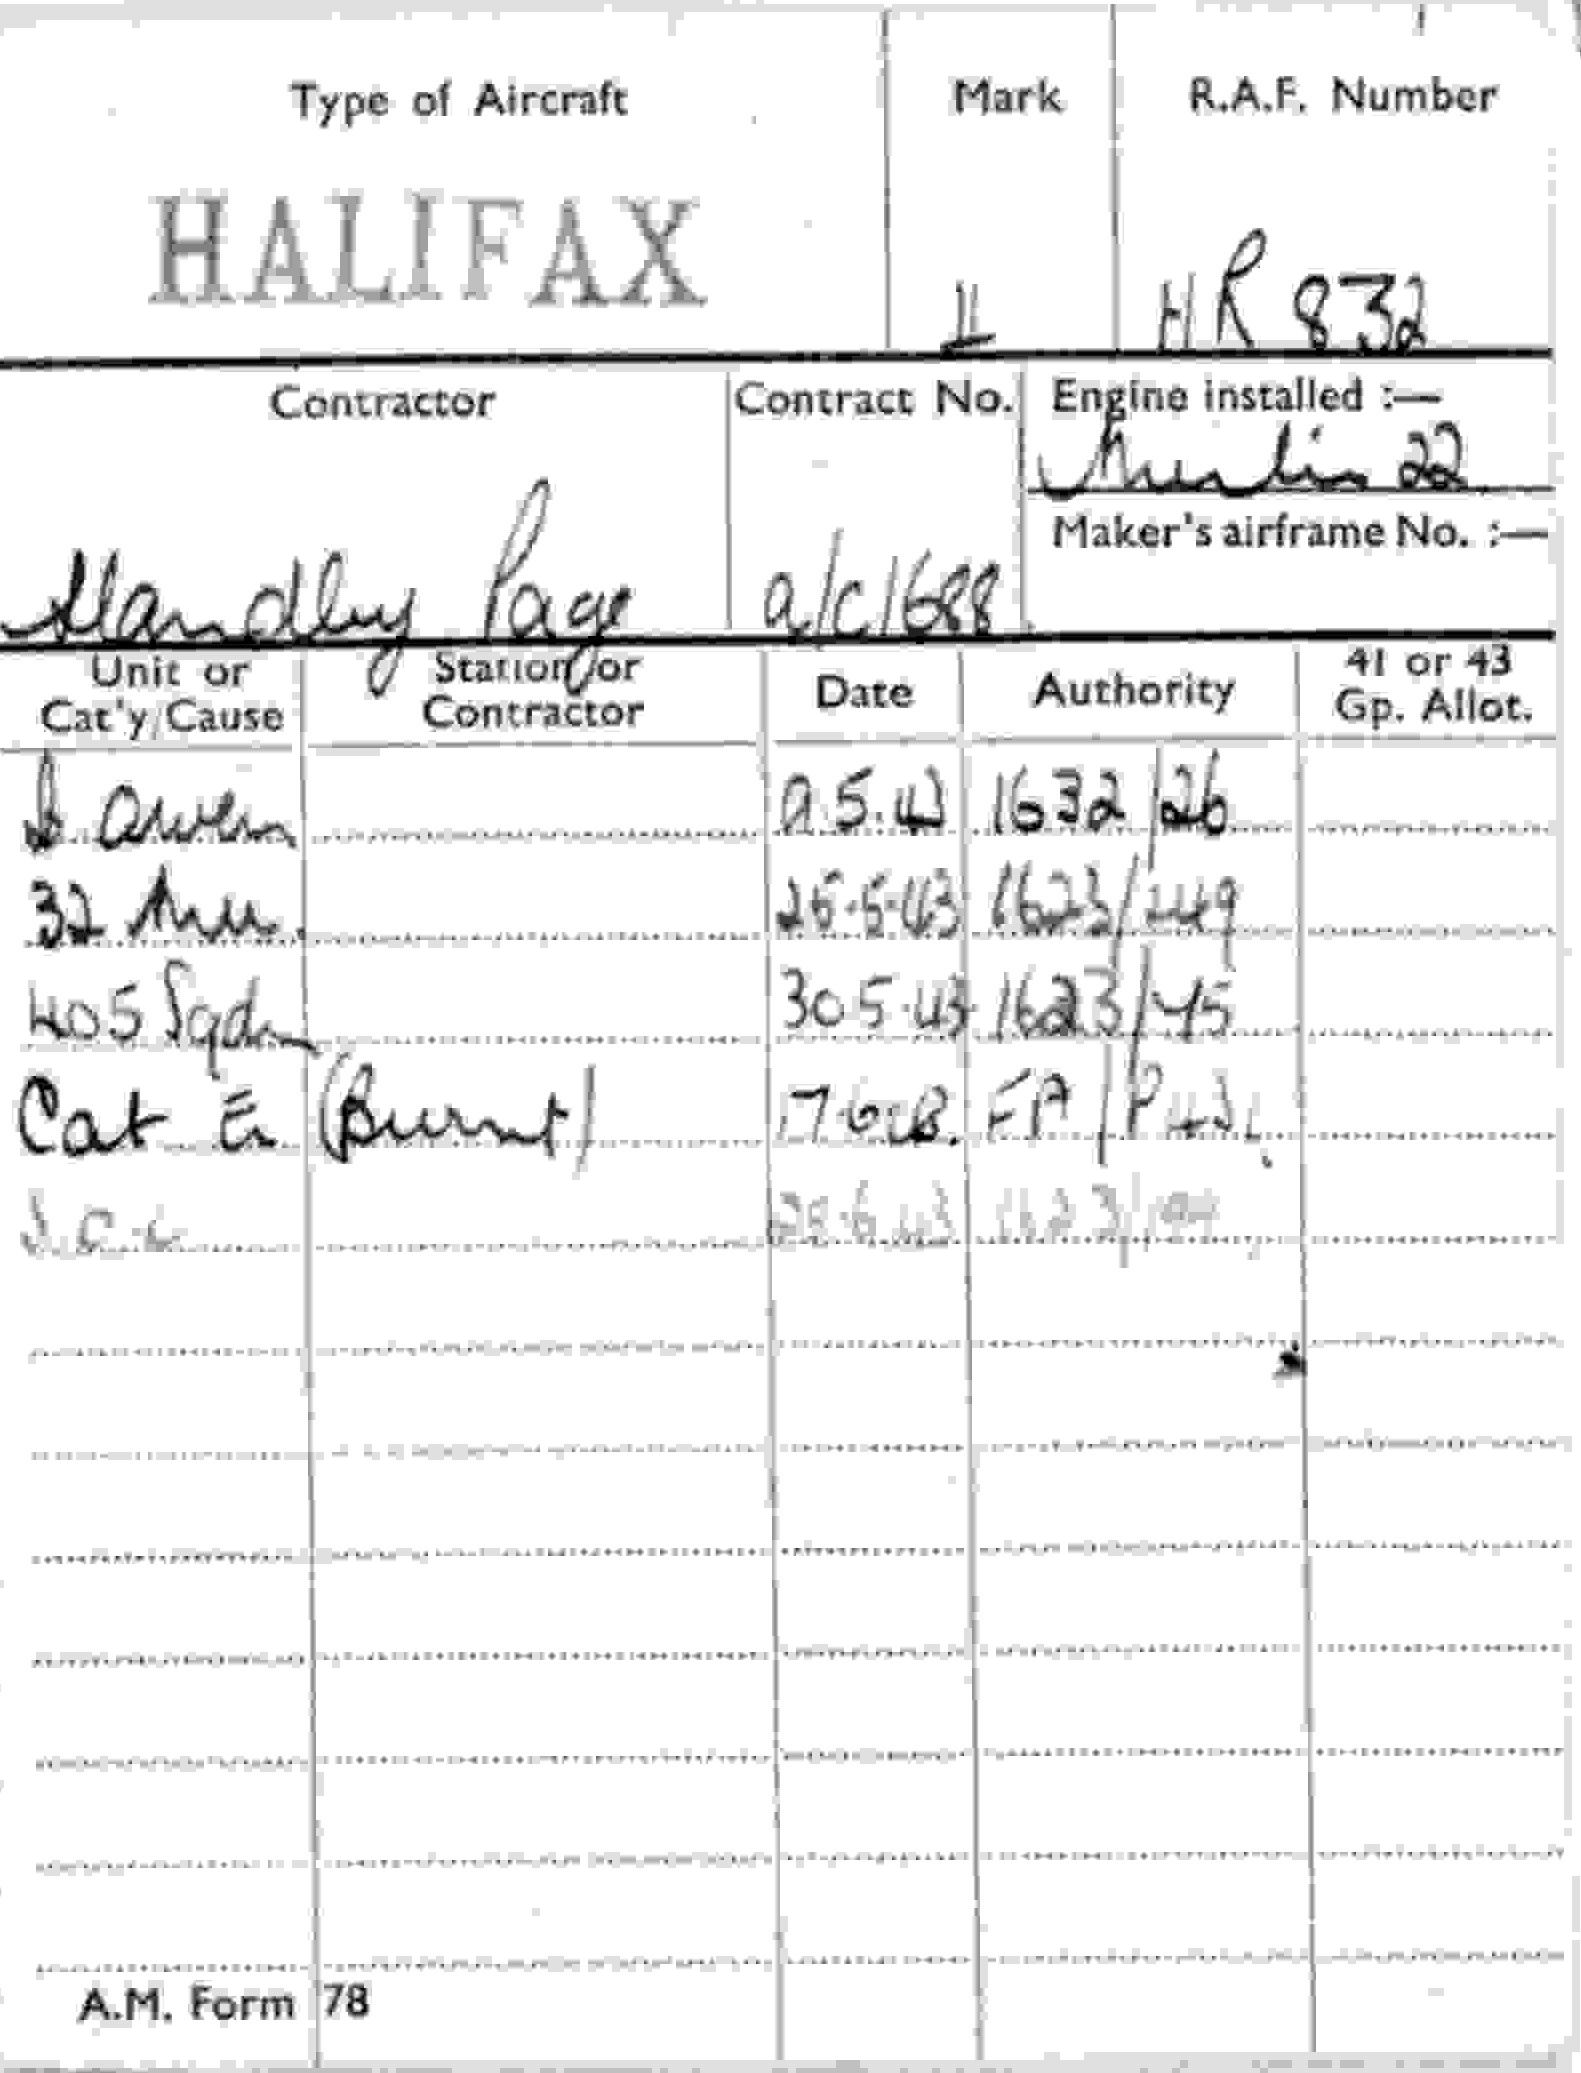 Type of Aircraft Mark R.A.F. Number
HALIFAX II HR 832
Contractor Contract No. Engine installed :—
Merlin 22
Maker's airframe No. :—
Handley Page a/c/688
Unit or Cat'y/Cause Station or Contractor Date Authority 41 or 43 Gp. Allot.
5.43 1632/26
32 Mu. 25.5.43 1623/
405 Sqdn 30.5.43 1623/45
Cat E (Burnt) FA/
1623/
A.M. Form 78